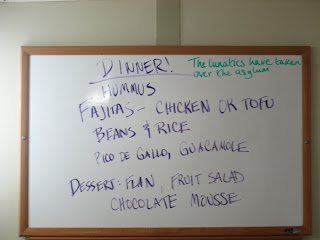 DINNER!
The lunatics have taken
over the asylum
HUMMUS
FAJITAS - CHICKEN OR TOFU
BEANS & RICE
PICO DE GALLO, GUACAMOLE
DESSERT: FLAN, FRUIT SALAD
CHOCOLATE MOUSSE